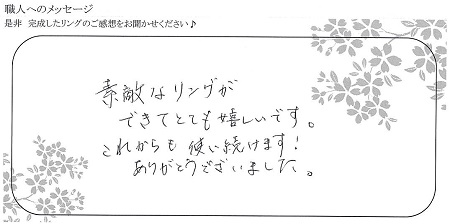 職人へのメッセージ
是非 完成したリングのご感想をお聞かせください♪
素敵なリングが
できてとても嬉しいです。
これからも使い続けます!
ありがとうございました。